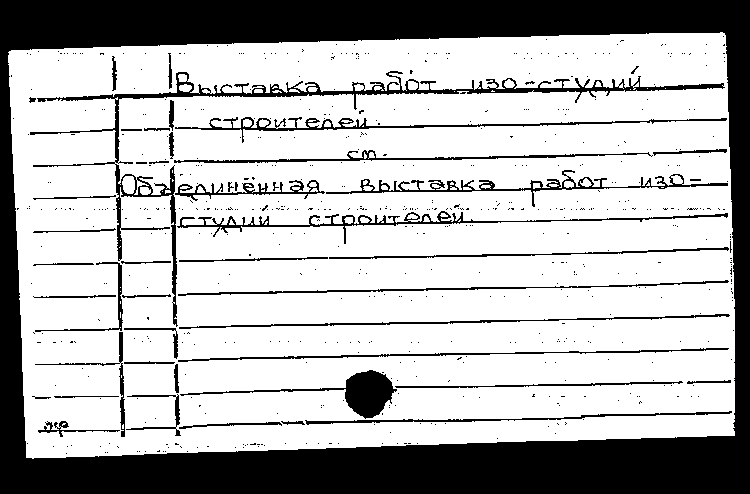 Выставка работ изо-студий
строителей.
см.
Объединённая выставка работ изо-
студий строителей.